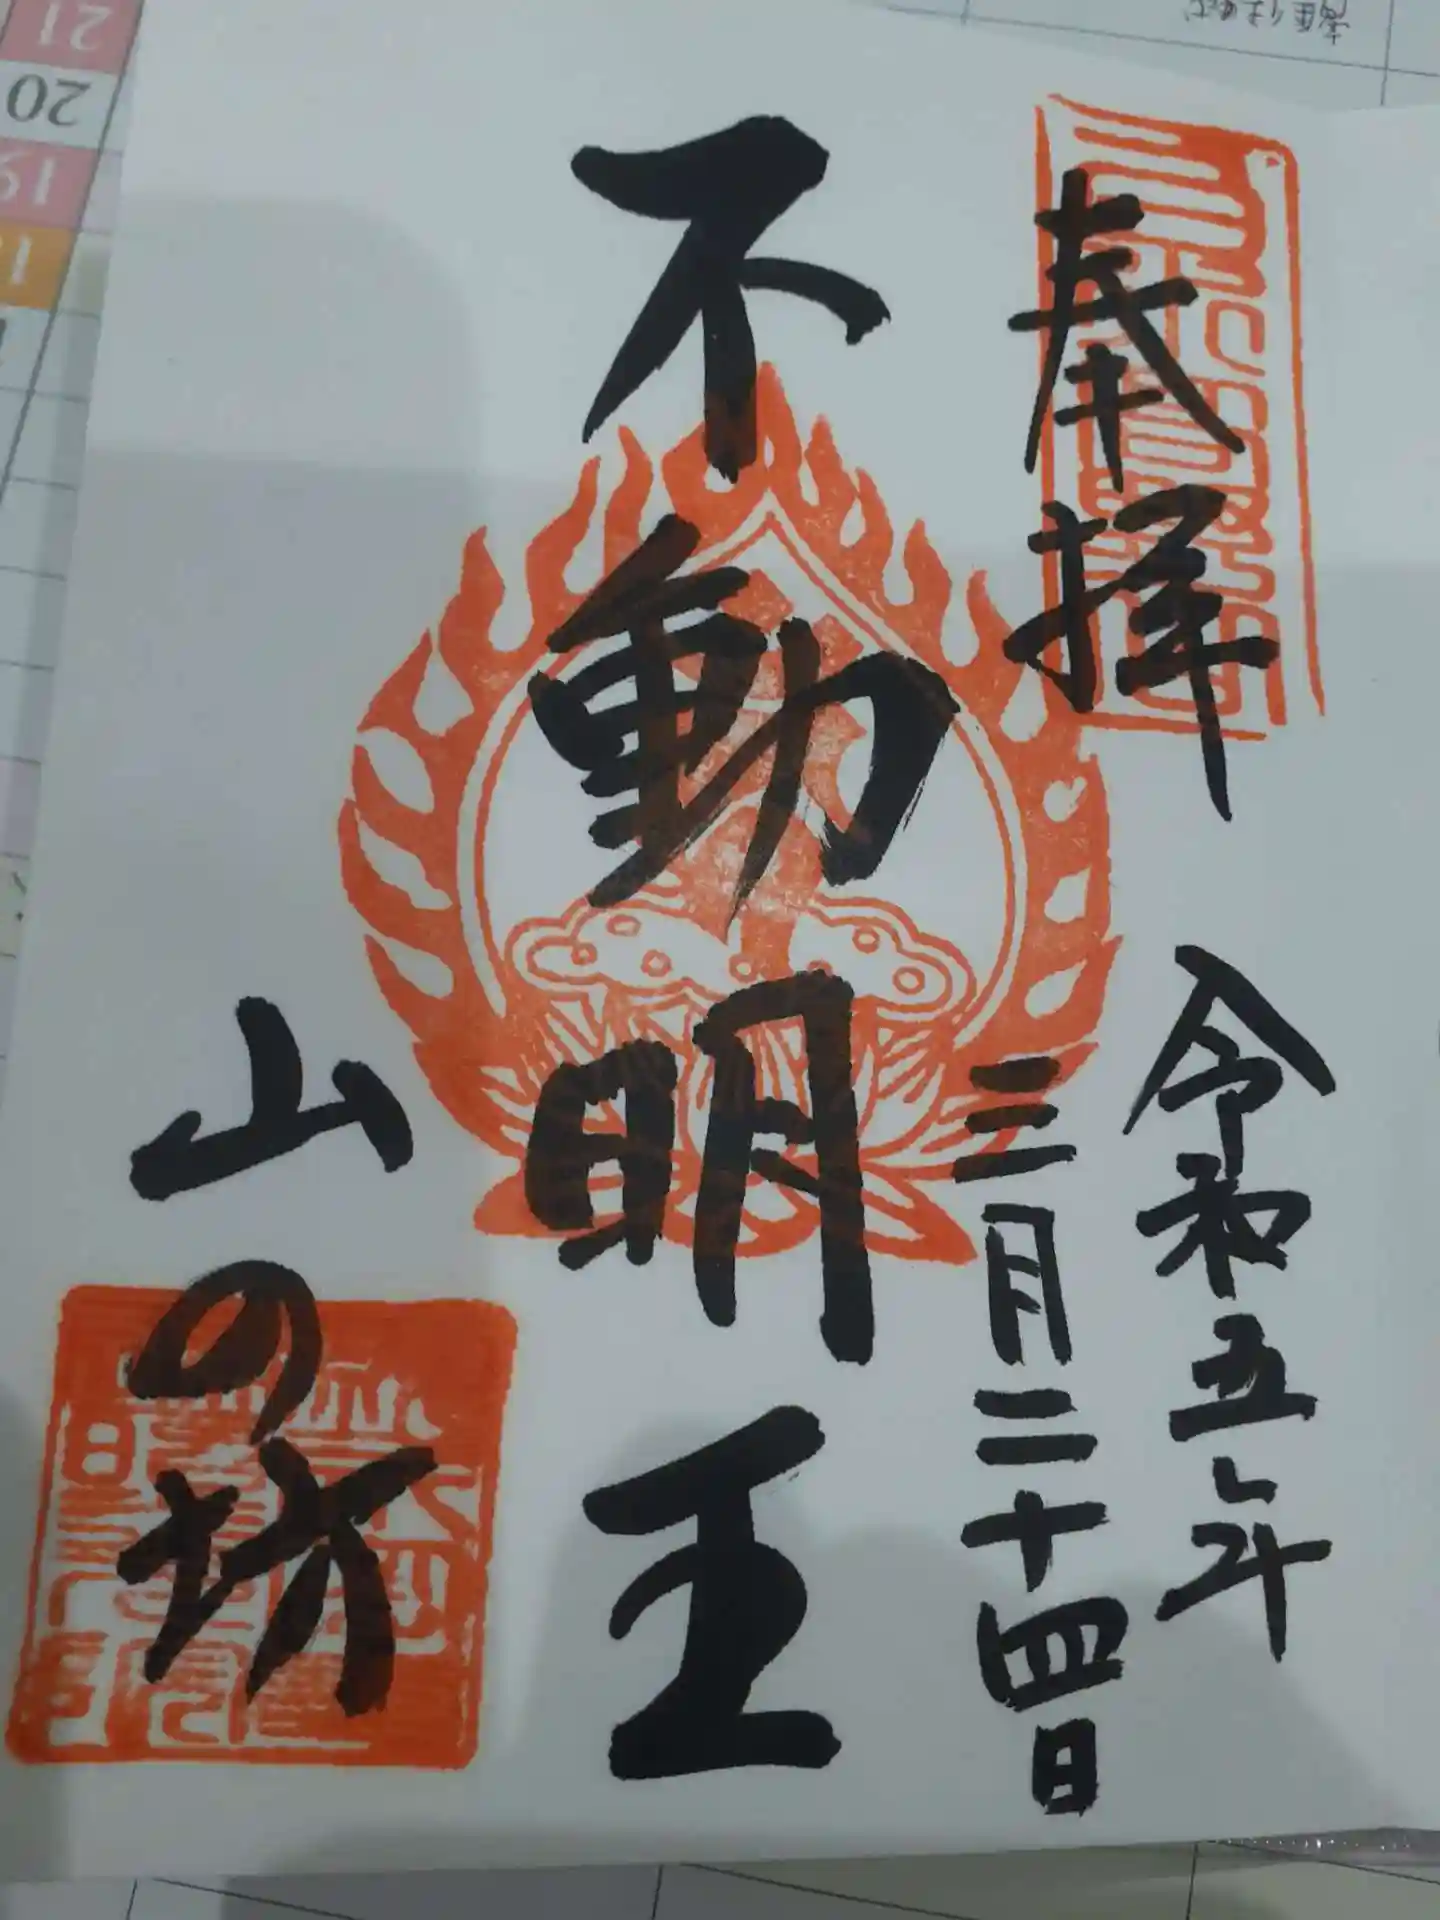 奉拝
令和五年
三月二十四日
不動明王
山の坊
21
20
19